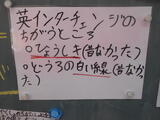 英インターチェンジの
ちがうところ
○なうしキ(昔なかった)
○どうろの白い線(昔なかっ
た)